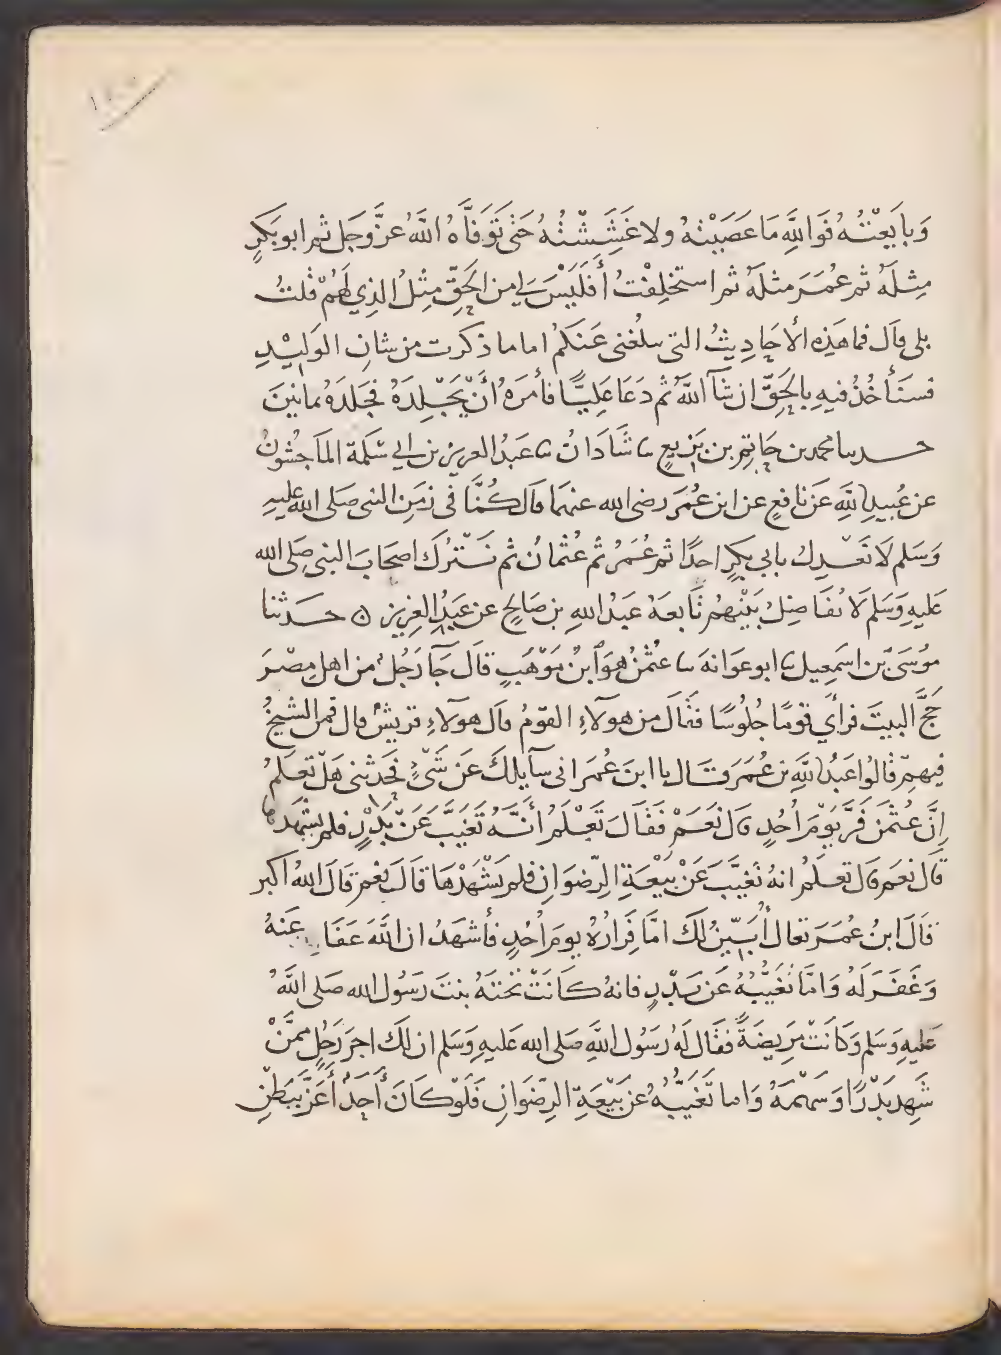 وَبَايَعْتُهُ فَوَاللَّهِ مَا عَصَيْتُهُ ولا غَشَشْتُهُ حَتَّى تَوَفَّاهُ اللَّهُ عزَّ وَجَل ثم ابو بَكرٍ
مِثلَهُ ثم عُمَرَ مثلَهُ ثم استخلِفْتُ أَفَلَيْسَ لي من الحَقِّ مِثْلُ الذِي لَهُمْ قُلتُ
بلى قال فما هَذِه الأحَادِيثُ التي تبلُغني عَنكُم اما ما ذكرت من شان الوَلِيْدِ
فسنَأخُذُ فيهِ بالحَقِّ ان شآ اللَّهُ ثم دَعَا عَلِيًّا فأمَرهُ أنْ يَجْلِدَهُ فجَلدَهُ ثمانينَ
حـدثنا محمد بن حَاتِم بن بَزِيعٍ ثنا شَاذانُ ثنا عبدُ العزيز بن ابي سَلَمة الماجشُونُ
عن عُبيدِ اللَّهِ عَن نافعٍ عن ابن عُمَر رضى الله عنهما قال كُنَّا فى زمَنِ النبى صَلى الله عليهِ
وَسَلم لا نَعْدِلُ بابي بكرٍ احدًا ثم عُمَرُ ثم عُثمانُ ثم نَتْرُك اصحَابَ النبى صَلى الله
عَليهِ وَسَلم لا نُفَاضِلُ بَيْنهُم تَابعَهُ عبدُ اللهِ بن صَالِح عن عَبدِ العزِيزِ ه حَـدثنا
موُسَى بن اسمَعِيل ثنا ابو عَوانهَ ثنا عُثْمنُ هوَ ابنُ مَوْهَبٍ قالَ جَآ رَجُلٌ من اهل مِصْرَ
حَجَّ البيتَ فرأى قومًا جُلوُسًا فقالَ من هولآءِ القوْمُ قال هولآءِ قريشٌ قال فمن الشيخُ
فيهم قالوا عَبدُ اللَّهِ بن عُمَرَ قال يا ابنَ عُمَر اني سآيلكَ عَن شَىْءٍ فحَدثنى هَل تعلَمُ
اِنَّ عُثمَن فَرَّ يَوْمَ اُحُدٍ قال نعَمْ فقَالَ تَعْلمُ أَنَّهُ تَغيَّبَ عَنْ بَدْرٍ فلم يشهَدها
قال نعَم قال تعلَمُ انهُ تغيَّبَ عَنْ بَيْعَةِ الرِّضوَانِ فلم يَشْهَدْهَا قالَ نعَم قالَ اللهُ اكبر
قالَ ابنُ عُمَرَ تعال أُبَيِّنُ لكَ امَّا فِرَارُهُ يومَ اُحُدٍ فأشهَدُ ان اللَّهَ عَفَا عَنهُ
وَغَفَرَ لهُ وَامَّا تغَيُّبُهُ عَن بَدْرٍ فانهُ كانَتْ تحْتَهُ بنتَ رَسُول الله صَلى اللهُ
عَليهِ وَسَلم وَكَانَتْ مَرِيضَةً فقال لَهُ رَسُول اللَّهِ صَلى الله عَليهِ وَسَلم ان لك اجرَ رَجُلٍ ممَّنْ
شَهِدَ بَدْرًا وَسَهْمَهُ وَاما تَغَيُّبُهُ عن بَيْعَةِ الرِّضْوَانِ فَلَوْ كانَ أَحَدٌ أَعَزَّ ببَطْنِ